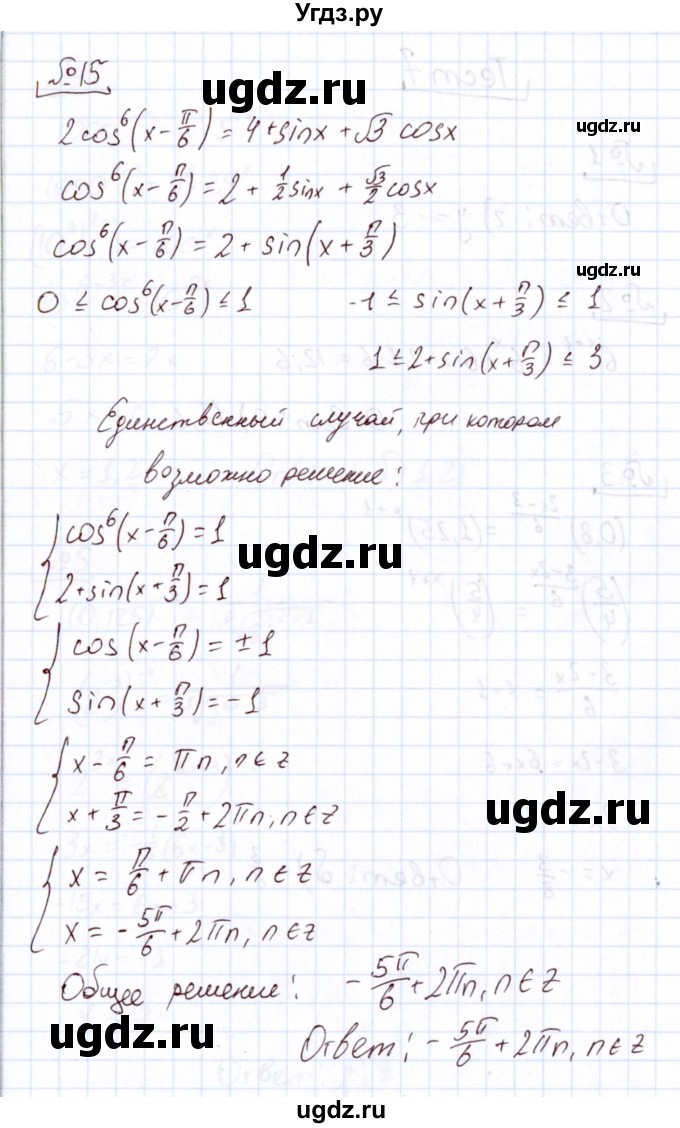 Угдз.ру
№15
ugdz.ru
2cos⁶(x-π/6)=4+sinx+√3 cosx
ugdz.ru
cos⁶(x-π/6)=2+1/2sinx+√3/2cosx
cos⁶(x-π/6)=2+sin(x+π/3)
ugdz.ru
0≤cos⁶(x-π/6)≤1 -1≤sin(x+π/3)≤1
1≤2+sin(x+π/3)≤3
Единственный случай, при котором
возможно решение:
cos⁶(x-π/6)=1
ugdz.ru
2+sin(x+π/3)=1
cos(x-π/6)=±1
sin(x+π/3)=-1
x-π/6=πn, n∈z
ugdz.ru
x+π/3=-π/2+2πn, n∈z
x=π/6+πn, n∈z
x=-5π/6+2πn, n∈z
ugdz.ru
Общее решение: -5π/6+2πn, n∈z
Ответ: -5π/6+2πn, n∈z
ugdz.ru